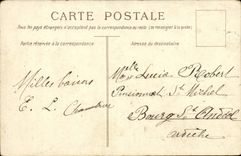 CARTE POSTALE
Tous les pays étrangers n'acceptent pas la correspondance au recto (se renseigner à la poste)
Partie réservée à la correspondance
Adresse du destinataire
Melle Lucia Robert
Pensionnat St Michel
Bourg St Andéol
Ardèche
Milles baisers
E. L.